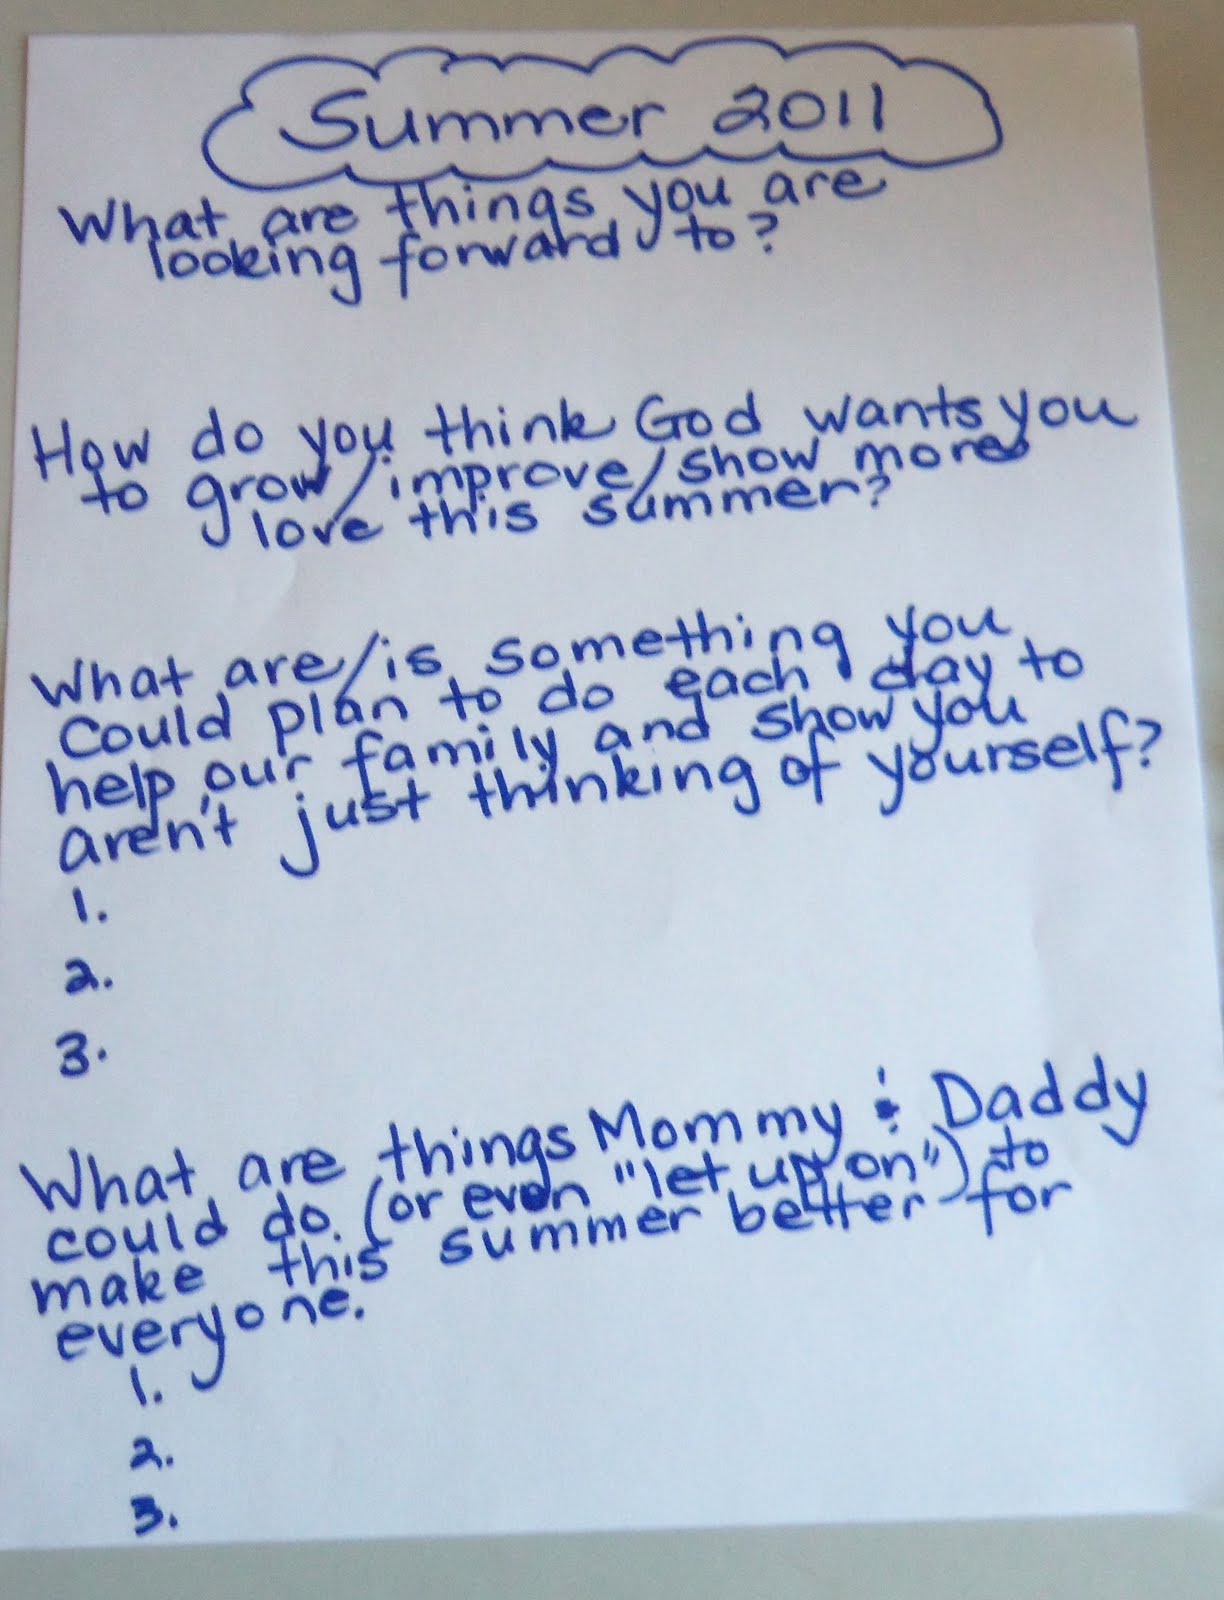 Summer 2011
What are things you are
looking forward to?
How do you think God wants you
to grow/improve/show more
love this summer?
What are/is something you
could plan to do each day to
help our family and show you
aren't just thinking of yourself?
1.
2.
3.
What are things Mommy & Daddy
could do (or even "let up on") to
make this summer better for
everyone.
1.
2.
3.